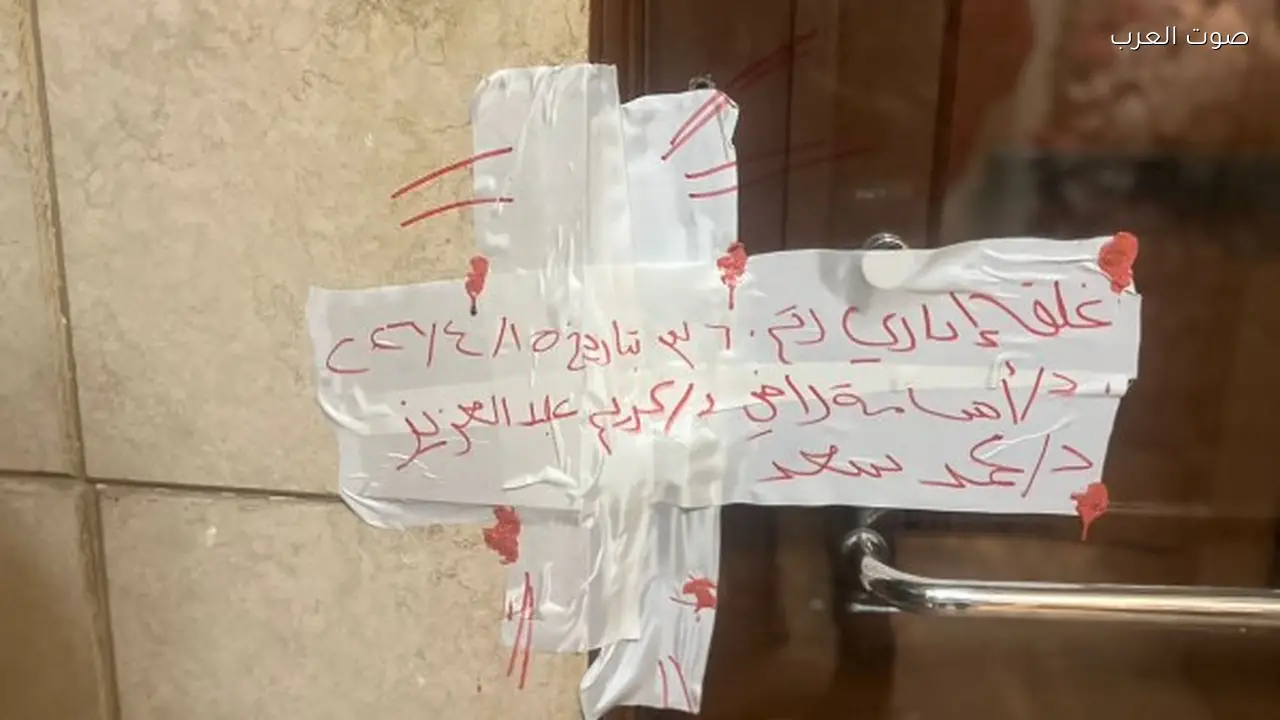 صوت العرب
غلق إداري رقم ٣٦٠ بتاريخ ١٥/٤/٢٦
د/أسامة راضي د/كريم عبد العزيز
د/محمد سعد